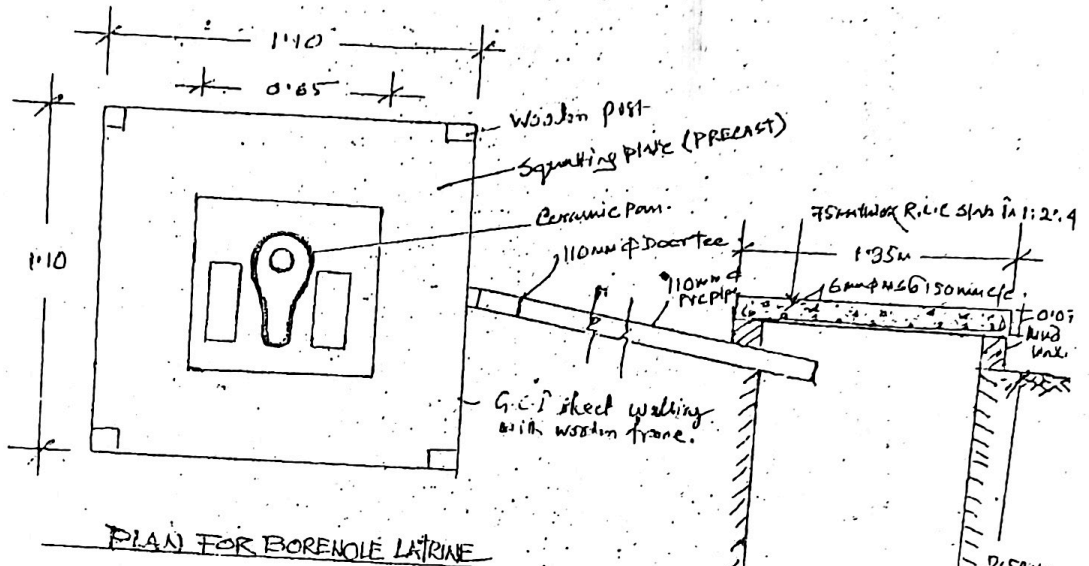 1.10
0.65
Wooden post
Squatting plate (PRECAST)
Ceramic pan.
110mm φ Door tee
110mm φ
PVC pipe
75mm thick R.C.C slab in 1:2:4
1.35m
6mm φ MS @ 150mm c/c.
1.10
G.C.I sheet walling
with wooden frame.
PLAN FOR BOREHOLE LATRINE